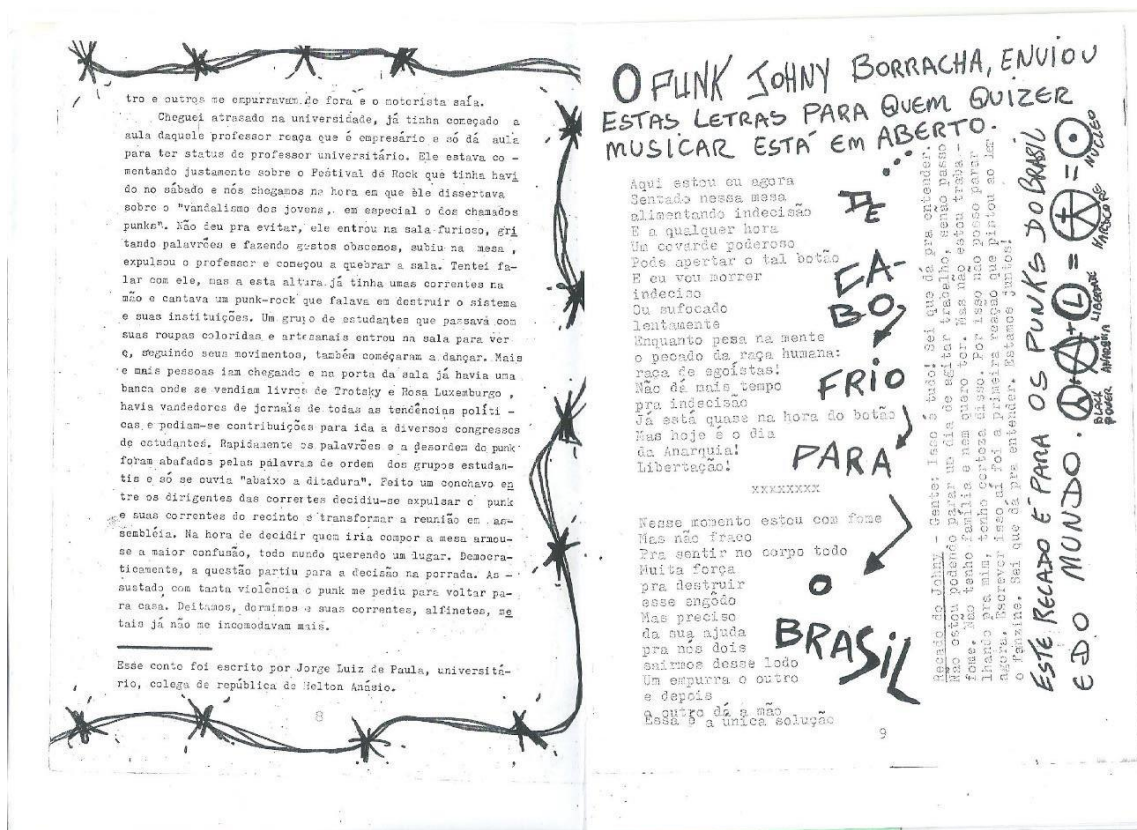 tro e outros me empurravam de fora e o motorista saía.
Cheguei atrasado na universidade, já tinha começado a
aula daquele professor reaça que é empresário e só dá aula
para ter status de professor universitário. Ele estava co -
mentando justamente sobre o Festival de Rock que tinha havi
do no sábado e nós chegamos na hora em que êle dissertava
sobre o "vandalismo dos jovens, em especial o dos chamados
punks". Não deu pra evitar, ele entrou na sala furioso, gri
tando palavrões e fazendo gestos obscenos, subiu na mesa ,
expulsou o professor e começou a quebrar a sala. Tentei fa-
lar com ele, mas a esta altura já tinha umas correntes na
mão e cantava um punk-rock que falava em destruir o sistema
e suas instituições. Um grupo de estudantes que passava com
suas roupas coloridas e artesanais entrou na sala para ver
e, seguindo seus movimentos, também começaram a dançar. Mais
e mais pessoas iam chegando e na porta da sala já havia uma
banca onde se vendiam livros de Trotsky e Rosa Luxemburgo ,
havia vandedores de jornais de todas as tendências políti -
cas e pediam-se contribuições para ida a diversos congressos
de estudantes. Rapidamente os palavrões e a desordem do punk
foram abafados pelas pálavras de ordem dos grupos estudan-
tis e só se ouvia "abaixo a ditadura". Feito um conchavo en
tre os dirigentes das correntes decidiu-se expulsar o punk
e suas correntes do recinto e transformar a reunião em as-
sembléia. Na hora de decidir quem iria compor a mesa armou-
se a maior confusão, todo mundo querendo um lugar. Democra-
ticamente, a questão partiu para a decisão na porrada. As -
sustado com tanta violência o punk me pediu para voltar pa-
ra casa. Deitamos, dormimos e suas correntes, alfinetes, me
tais já não me incomodavam mais.
Esse conto foi escrito por Jorge Luiz de Paula, universitá-
rio, colega de república de Helton Anásio.
8
O PUNK JOHNY BORRACHA, ENVIOU
ESTAS LETRAS PARA QUEM QUIZER
MUSICAR ESTÁ EM ABERTO.
Aqui estou eu agora
Sentado nessa mesa
alimentando indecisão
E a qualquer hora
Um covarde poderoso
Pode apertar o tal botão
E eu vou morrer
indeciso
Ou sufocado
lentamente
Enquanto pesa na mente
o pecado da raça humana:
raça de egoístas!
Não dá mais tempo
pra indecisão
Já está quase na hora do botão
Mas hoje é o dia
da Anarquia!
Libertação!
xxxxxxxx
Nesse momento estou com fome
Mas não fraco
Pra sentir no corpo todo
Muita força
pra destruir
esse engôdo
Mas preciso
da sua ajuda
pra nós dois
sairmos desse lodo
Um empurra o outro
e depois
o outro dá a mão
Essa é a única solução
DE
CA-
BO
FRIO
PARA
O
BRASIL
Recado do Johny - Gente: Isso é tudo! Sei que dá pra entender.
Não estou podendo parar um dia de agitar trabalho, senão passo
fome. Não tenho família e nem quero ter. Mas não estou traba -
lhando pra mim, tenho certeza disso. Por isso não posso parar
agora. Escrever isso aí foi a primeira reação que pintou ao ler
o fanzine. Sei que dá pra entender. Estamos juntos!
ESTE RECADO É PARA OS PUNKS DO BRASIL
E DO MUNDO.
+ A + L = =
BLACK POWER
ANARQUIA
LIBERDADE
HARDCORE
NÚCLEO
9